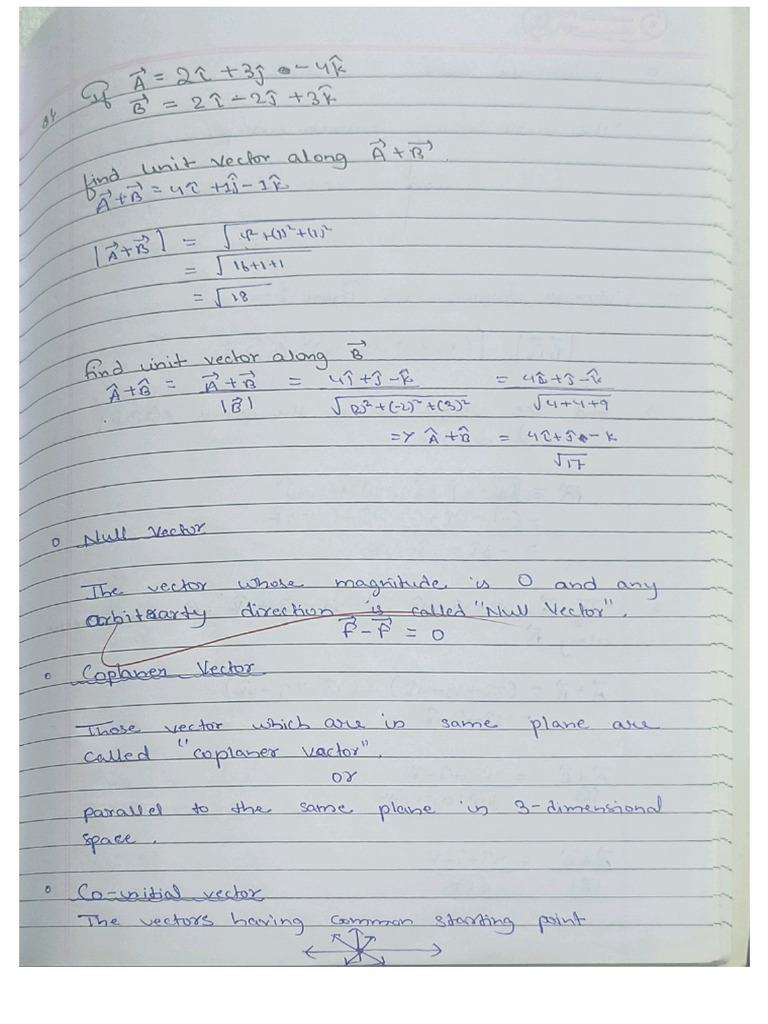 If A⃗ = 2î + 3ĵ - 4k̂
B⃗ = 2î - 2ĵ + 3k̂
find unit vector along A⃗+B⃗
A⃗+B⃗ = 4î +1ĵ-1k̂
|A⃗+B⃗| = √4²+(1)²+(1)²
= √16+1+1
= √18
find unit vector along B⃗
Â+B̂ = A⃗+B⃗/|B⃗| = 4î+ĵ-k̂/√(2)²+(-2)²+(3)² = 4î+ĵ-k̂/√4+4+9
=> Â+B̂ = 4î+ĵ-k/√17
o Null Vector
The vector whose magnitude is 0 and any
arbitrarty direction is called "Null Vector".
F⃗-F⃗ = 0
o Coplaner Vector
Those vector which are in same plane are
called "coplaner vactor".
or
parallel to the same plane in 3-dimensional
space.
o Co-initial vector
The vectors having common starting point